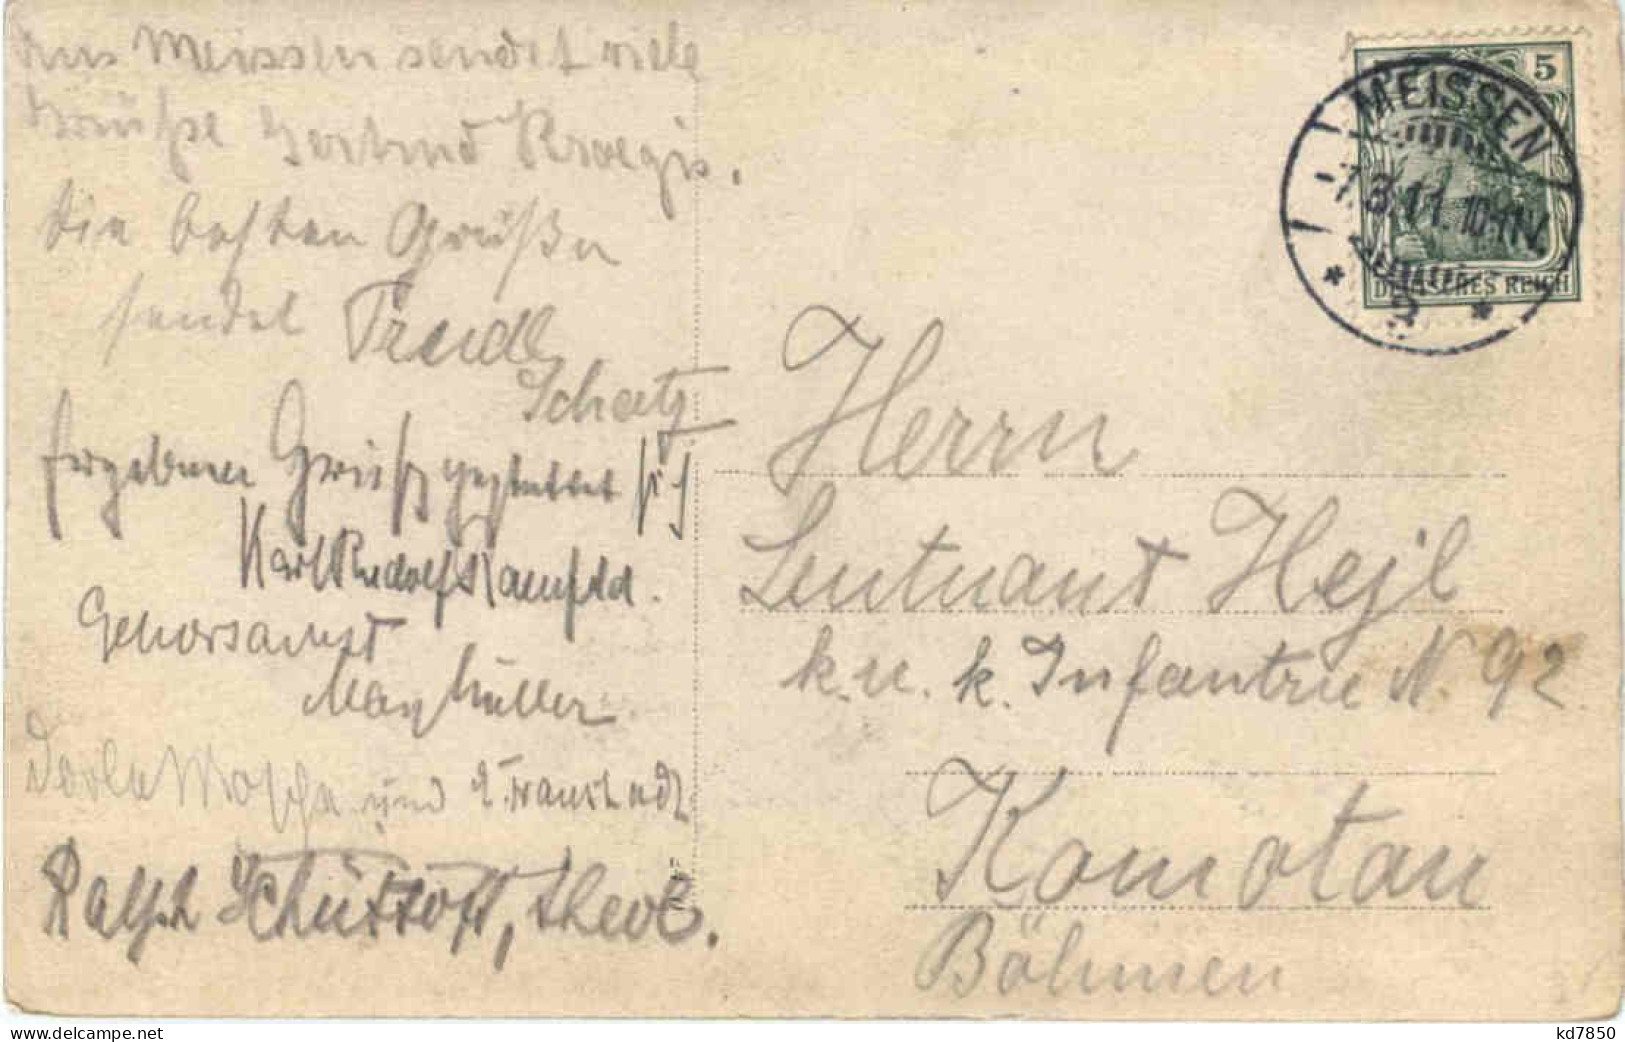 Aus Meissen sendet viele
Grüße Gertrud Kroegis.
die besten Grüße
sendet Trudl
Schatz
Ergebenen Gruß gestattet sich
Karl Rudolf
Gehorsamst
Max Müller
Dorle und
Ralph theol.
5
MEISSEN
-7.3.11.10-11V.
DEUTSCHES REICH
* 2 *
Herrn
Leutnant Hejl
k. u. k. Infantrie N. 92
Komotau
Böhmen
www.delcampe.net
kd7850